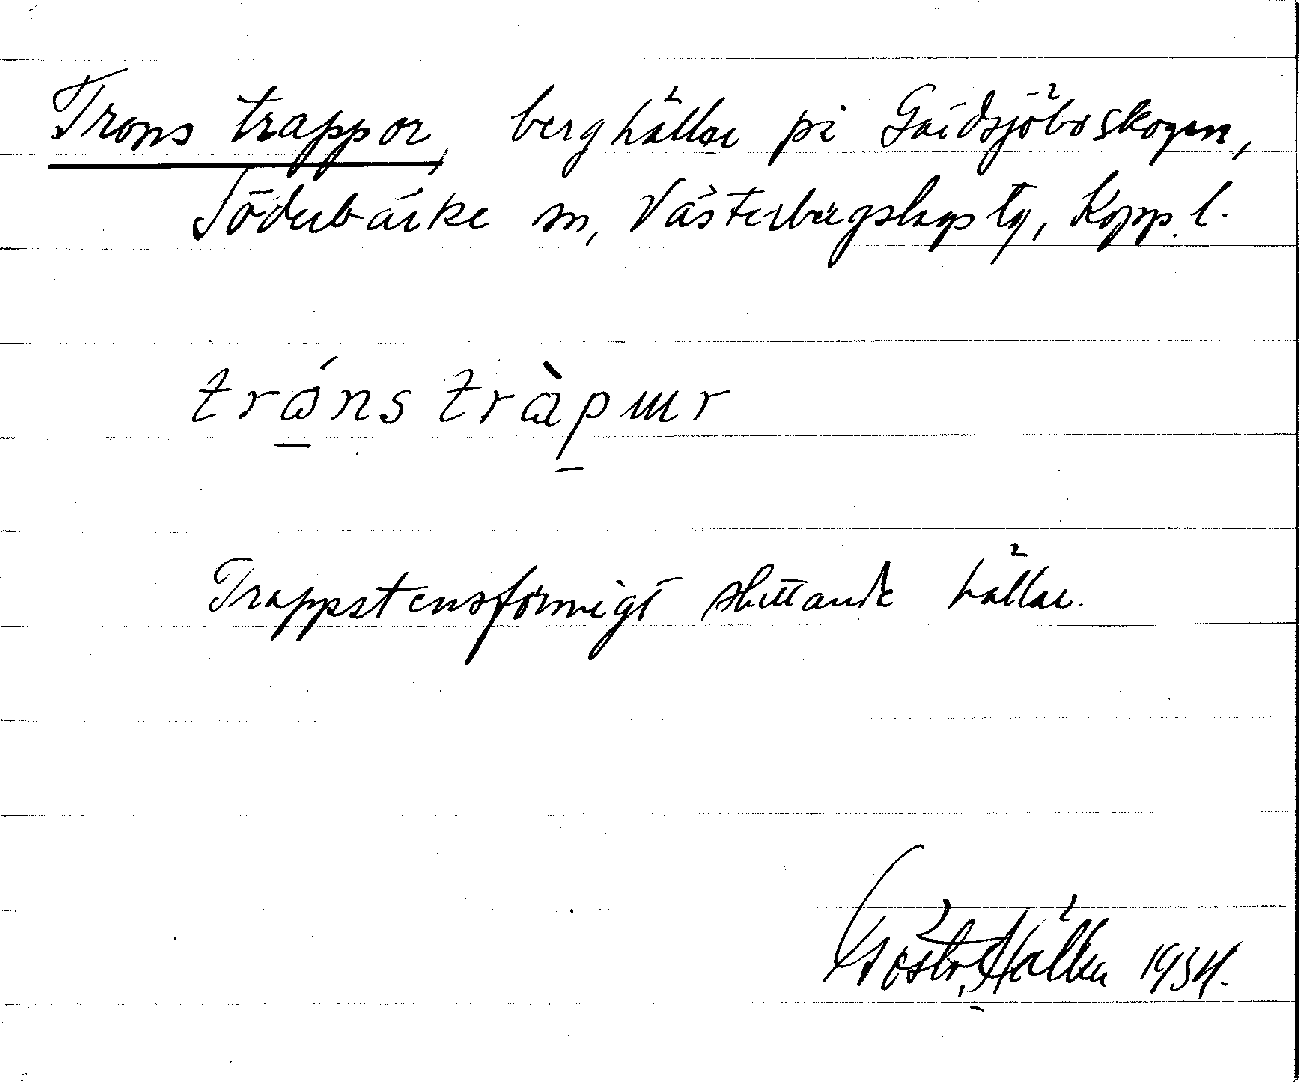 Trons trappor, berghällar på Gårdsjöboskogen,
Söderbärke sn, Västerbergslags tg, Kopp. l.
trɷ́ns tràpɯr
Trappstensformigt sluttande hällar.
Gösta Hälla 1934.